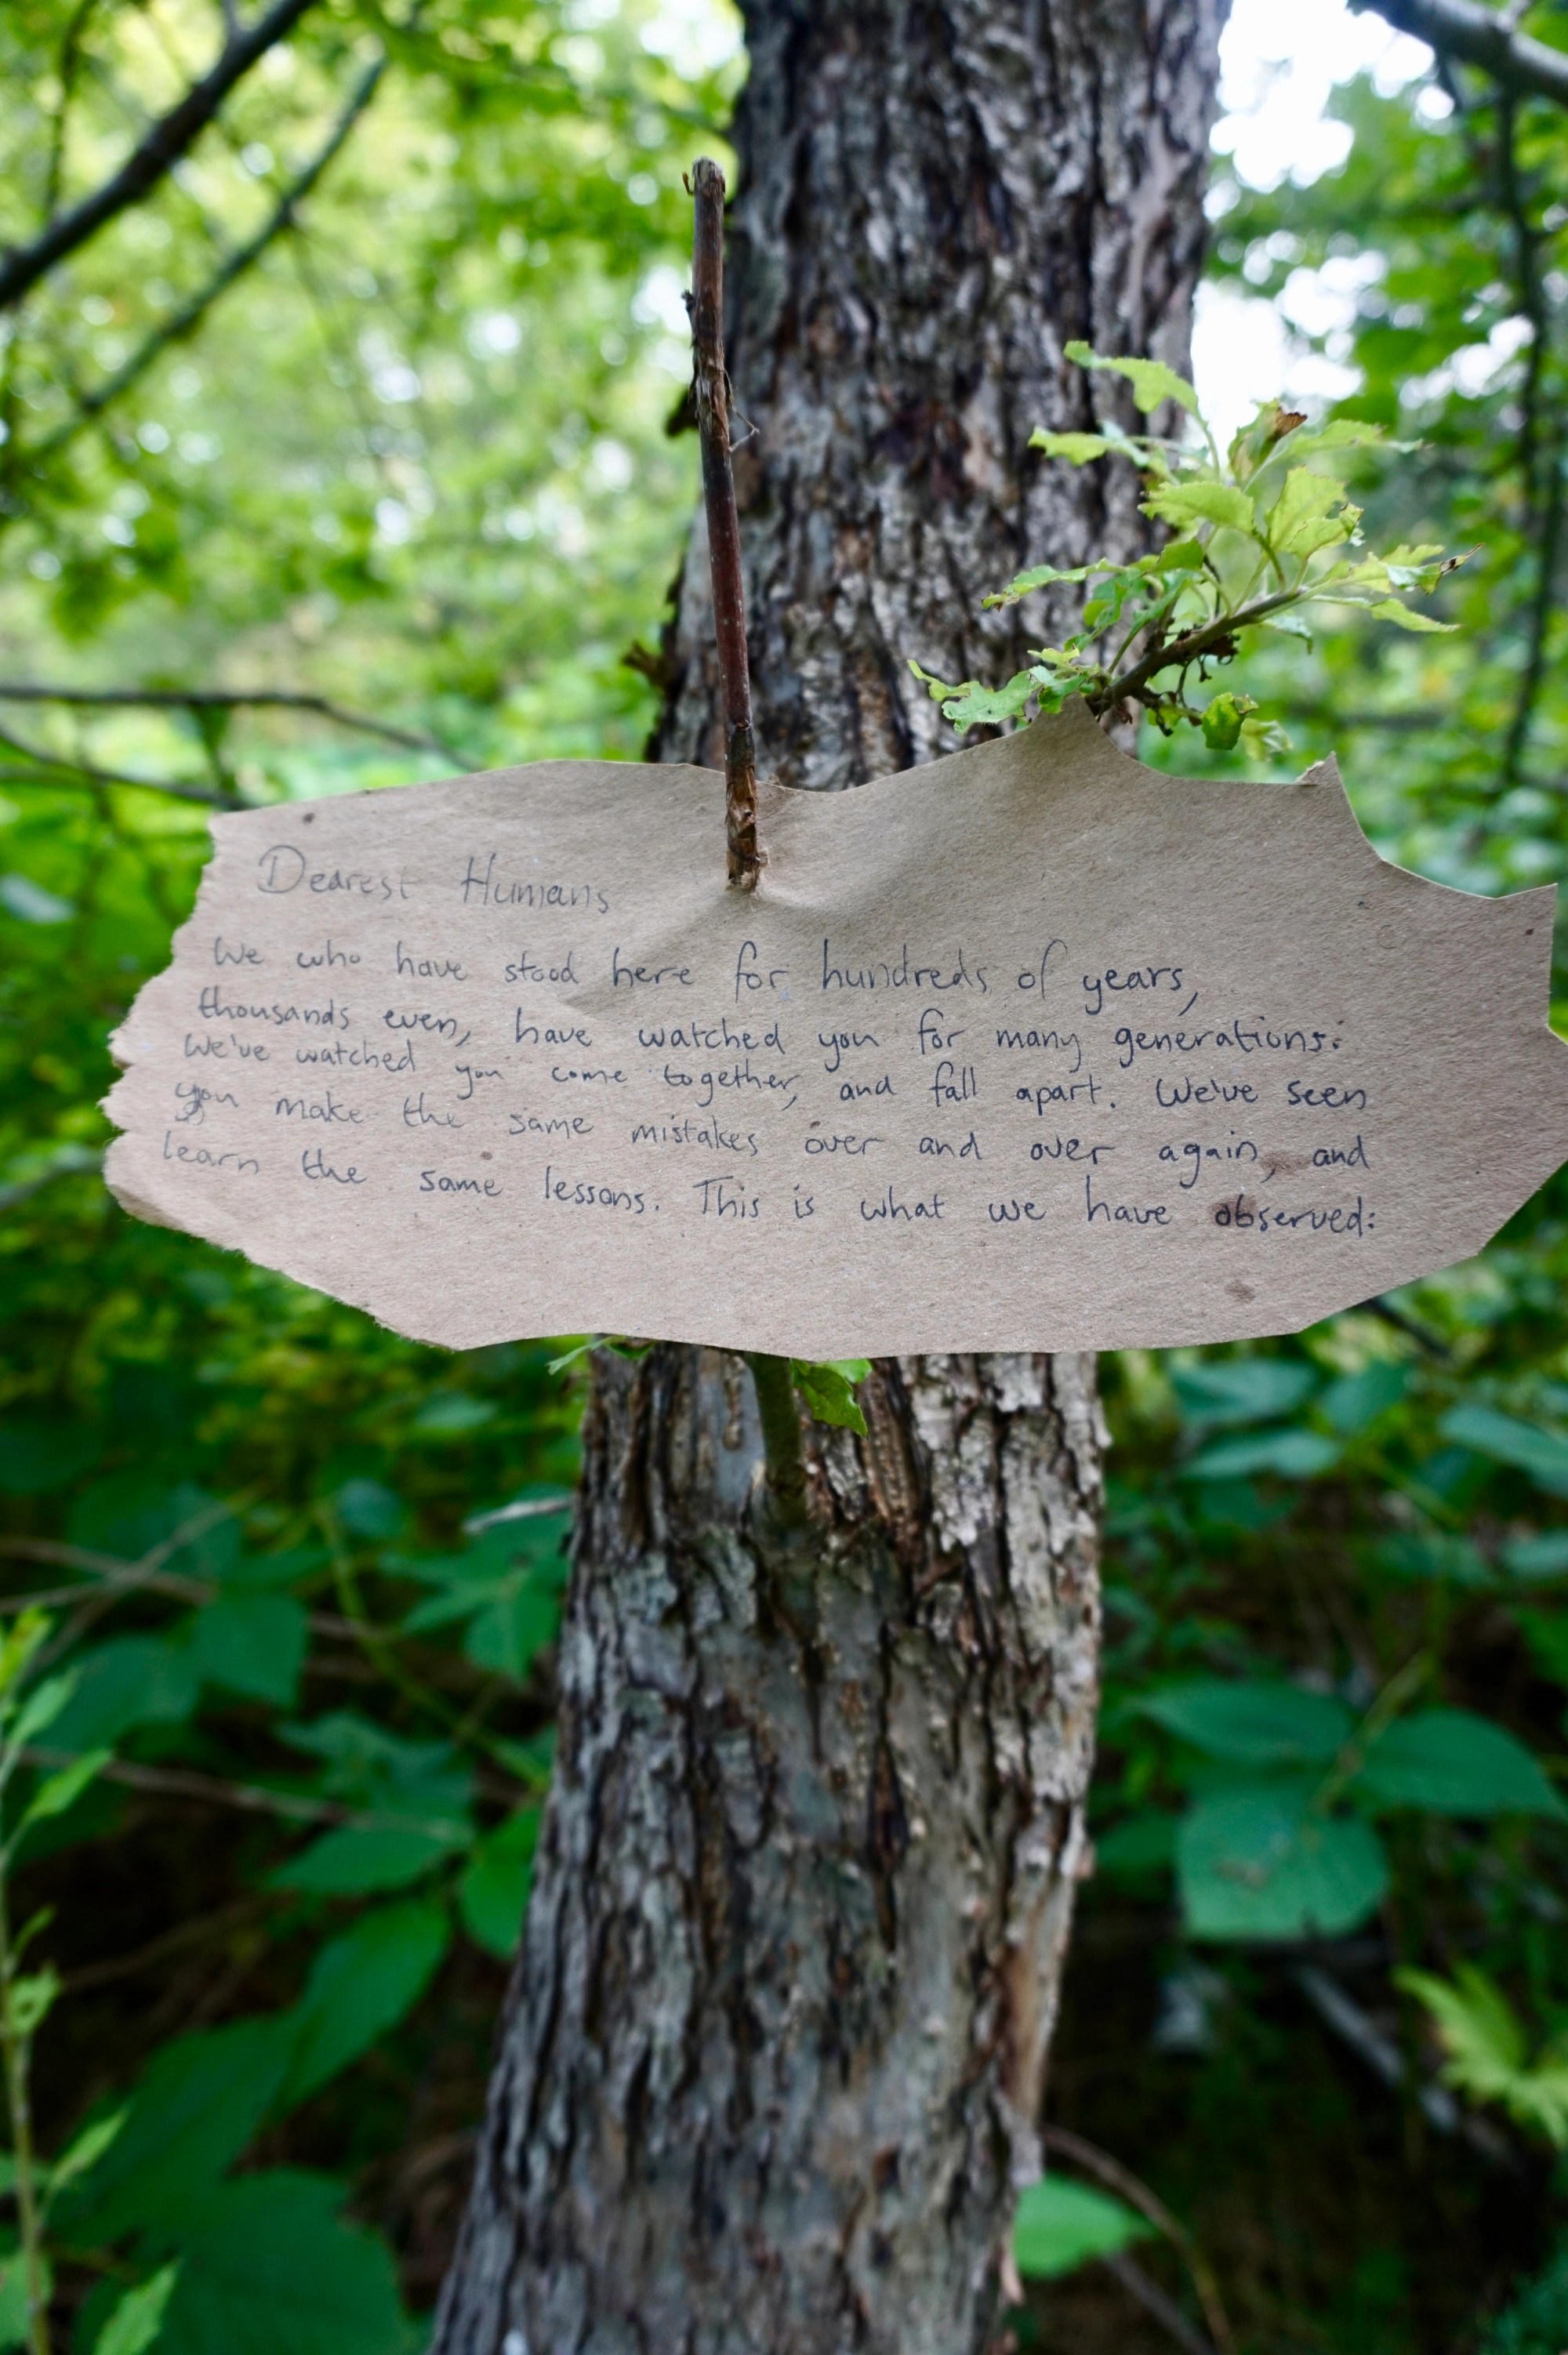 Dearest Humans
We who have stood here for hundreds of years,
thousands even, have watched you for many generations:
We've watched you come together, and fall apart. We've seen
you make the same mistakes over and over again, and
learn the same lessons. This is what we have observed: